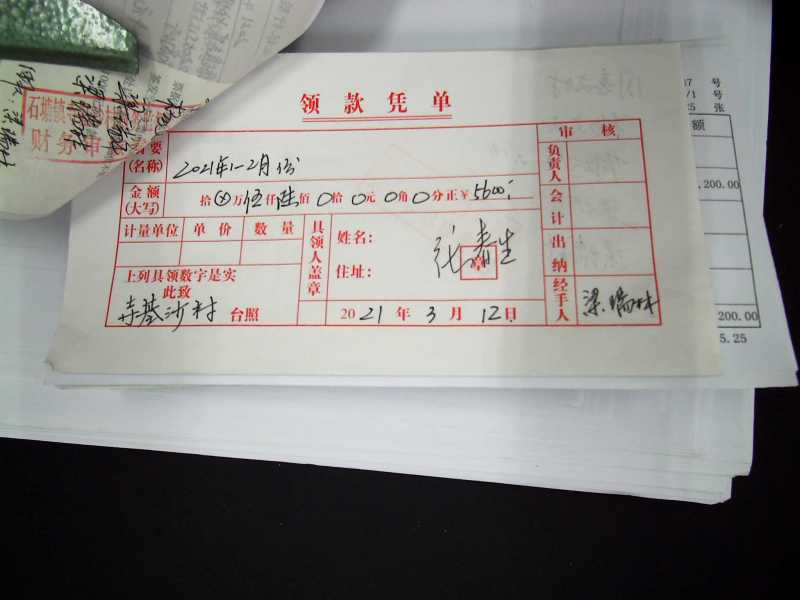 领款凭单
石塘镇
财务审
摘要
(名称) 2021年1-2月份
审核
负责人
会计
出纳
经手人 梁瑞林
金额
(大写) 拾⊗万伍仟陆佰0拾0元0角0分正￥5600
计量单位 单价 数量
具领人盖章
姓名: 张春生
住址:
章
上列具领数字是实
此致
寺基沙村 台照
2021年3月12日
号
号
张
额
,200.00
200.00
5.25